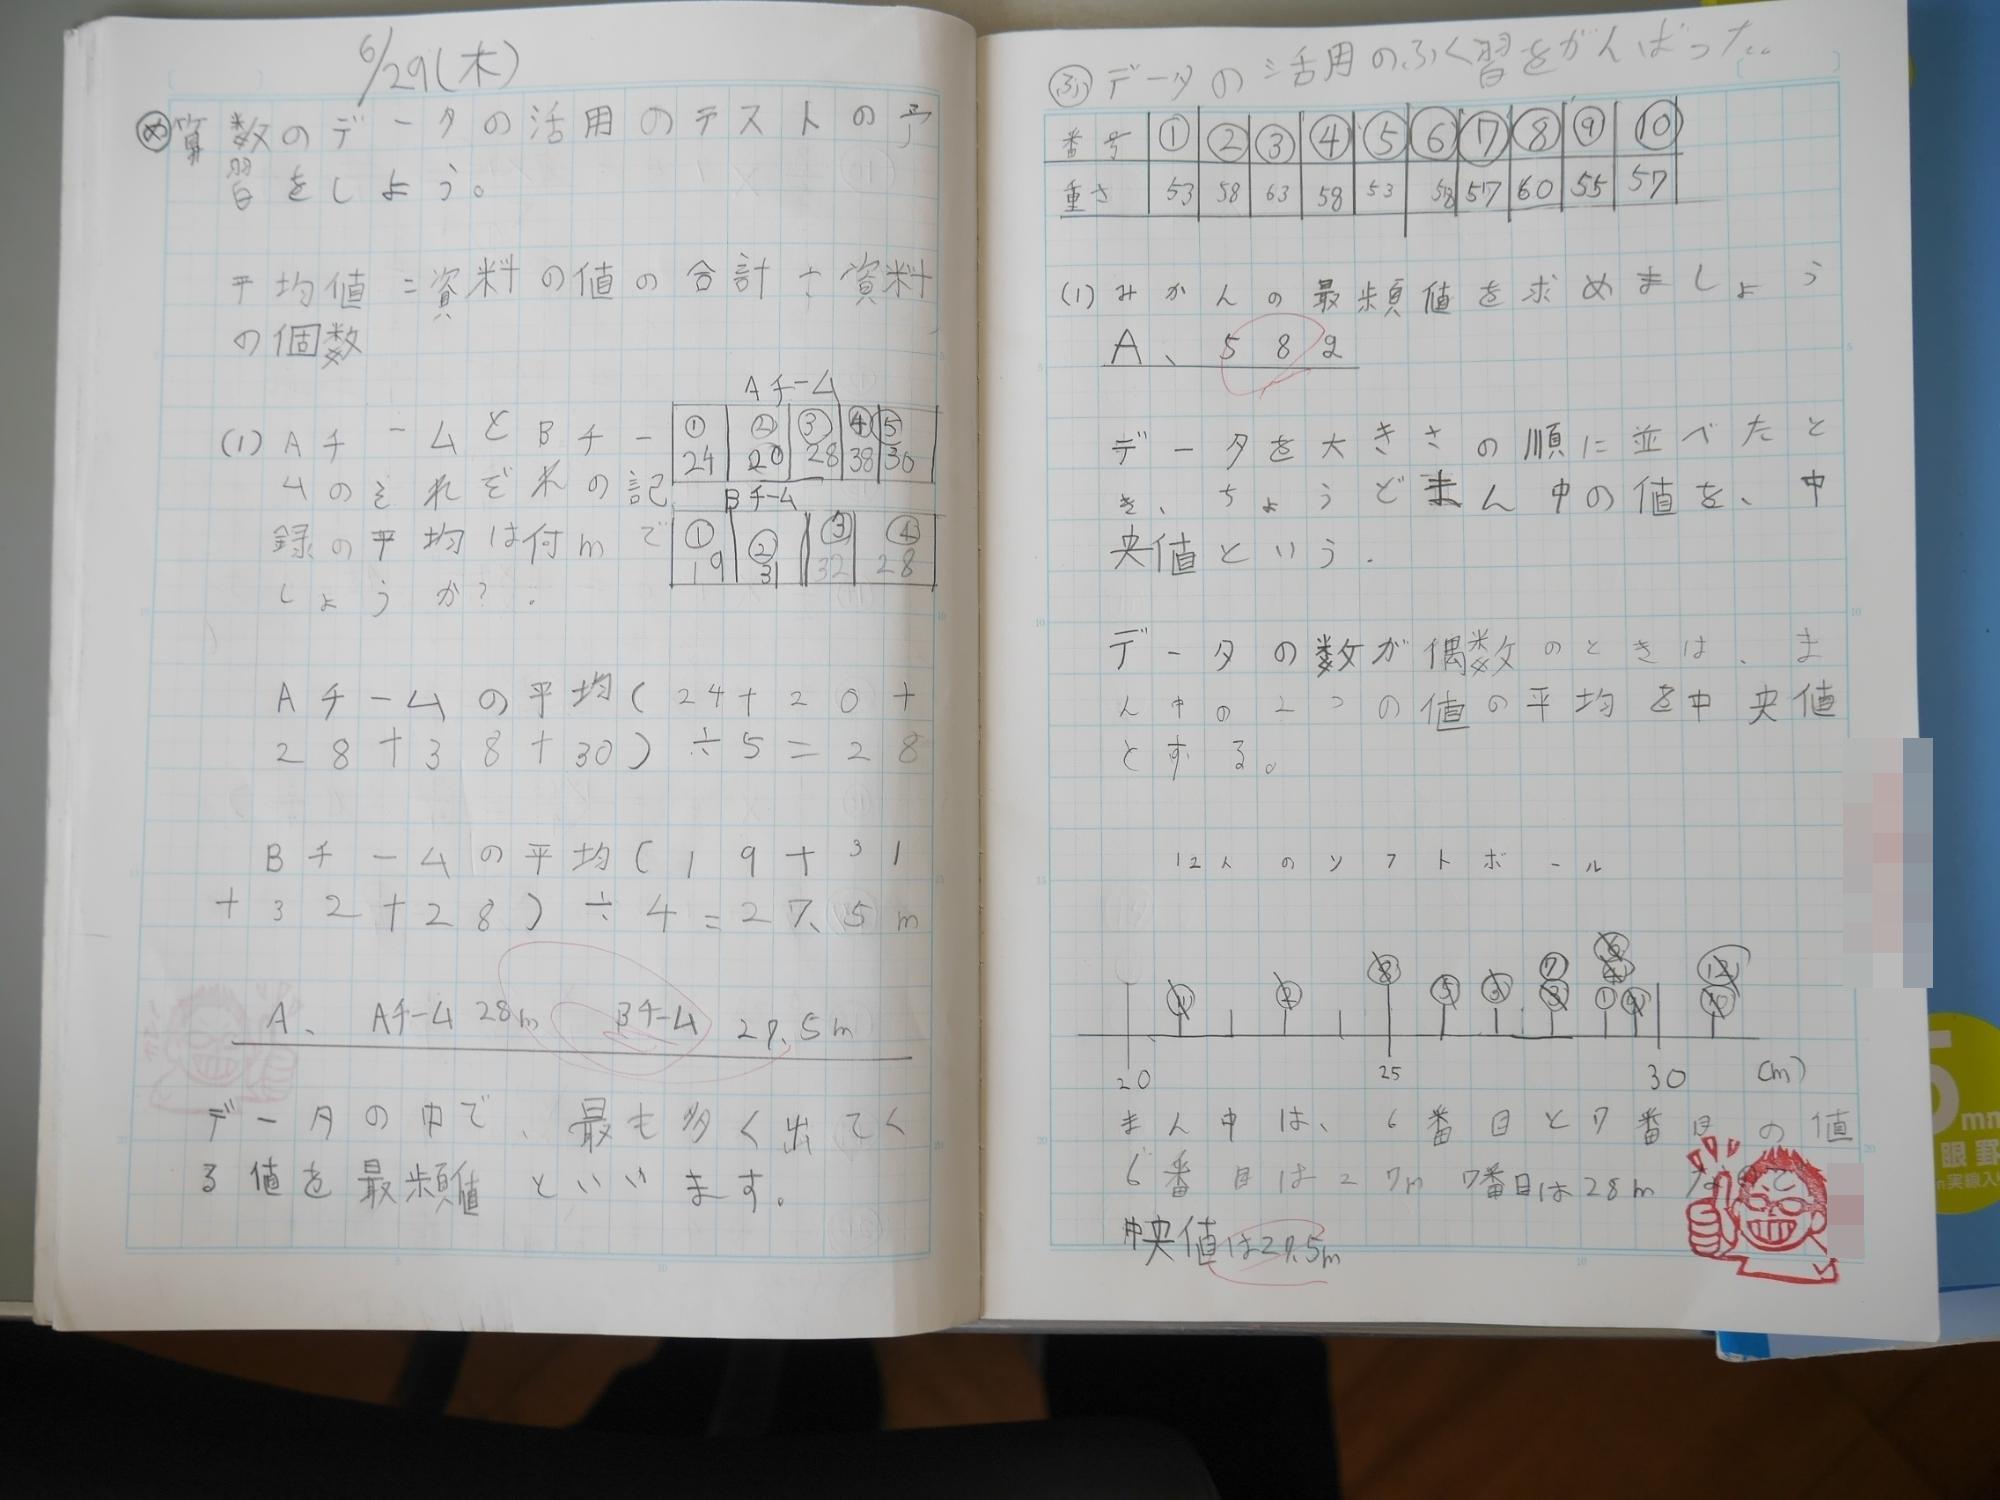 6/29(木)
め 算数のデータの活用のテストの予
習をしよう。
平均値=資料の値の合計÷資料
の個数
(1) AチームとBチー
ムのそれぞれの記
録の平均は何mで
しょうか?.
Aチーム
① ② ③ ④ ⑤
24 20 28 38 30
Bチーム
① ② ③ ④
19 31 32 28
Aチームの平均(24+20+
28+38+30)÷5=28
Bチームの平均(19+31
+32+28)÷4=27.5m
A、 Aチーム 28m Bチーム 27.5m
データの中で、最も多く出てく
る値を最頻値といいます。
ふ データの活用のふく習をがんばった。
番号 ① ② ③ ④ ⑤ ⑥ ⑦ ⑧ ⑨ ⑩
重さ 53 58 63 58 53 58 57 60 55 57
(1) みかんの最頻値を求めましょう
A、58g
データを大きさの順に並べたと
き、ちょうどまん中の値を、中
央値という.
データの数が偶数のときは、ま
ん中の2つの値の平均を中央値
とする。
12人のソフトボール
20 25 30 (m)
まん中は、6番目と7番目の値
6番目は27m 7番目は28m
中央値は27.5m
5
mm
眼